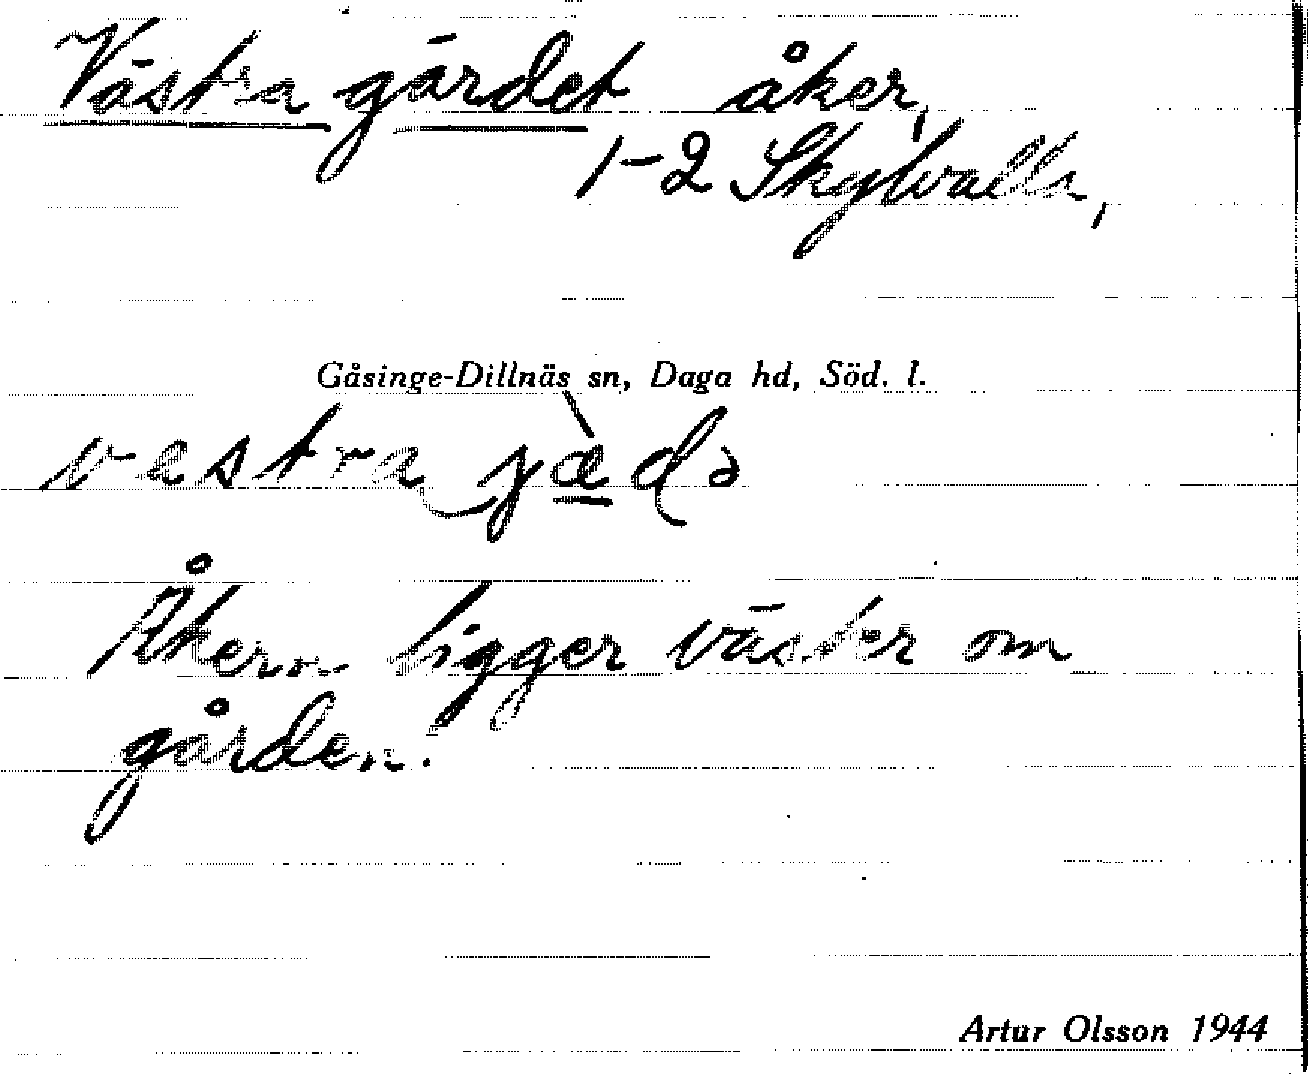 Västra gärdet åker,
1-2 Skylvalla,
Gåsinge-Dillnäs sn, Daga hd, Söd. l.
vestra jæ̀də
Åkern ligger väster om
gården.
Artur Olsson 1944